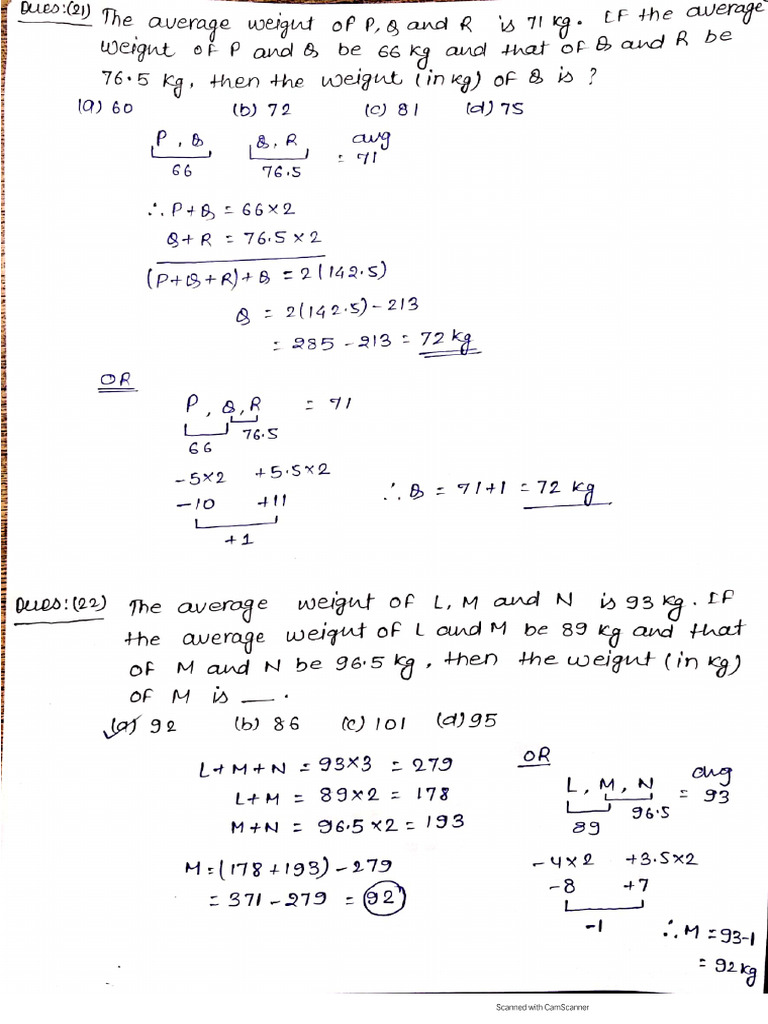 Ques:(21) The average weight of P, Q and R is 71 kg. If the average
weight of P and Q be 66 kg and that of Q and R be
76.5 kg, then the weight (in kg) of Q is ?
(a) 60 (b) 72 (c) 81 (d) 75
P, Q Q, R avg
66 76.5 = 71
∴ P + Q = 66 × 2
Q + R = 76.5 × 2
(P+Q+R)+Q = 2(142.5)
Q = 2(142.5) - 213
= 285 - 213 = 72 kg
OR
P, Q, R = 71
66 76.5
-5×2 +5.5×2
-10 +11
+1
∴ Q = 71+1 = 72 kg
Ques:(22) The average weight of L, M and N is 93 kg. If
the average weight of L and M be 89 kg and that
of M and N be 96.5 kg, then the weight (in kg)
of M is __.
(a) 92 (b) 86 (c) 101 (d) 95
L + M + N = 93×3 = 279
L + M = 89×2 = 178
M + N = 96.5×2 = 193
M = (178 + 193) - 279
= 371 - 279 = 92
OR
L, M, N = avg 93
89 96.5
-4×2 +3.5×2
-8 +7
-1
∴ M = 93-1
= 92 kg
Scanned with CamScanner